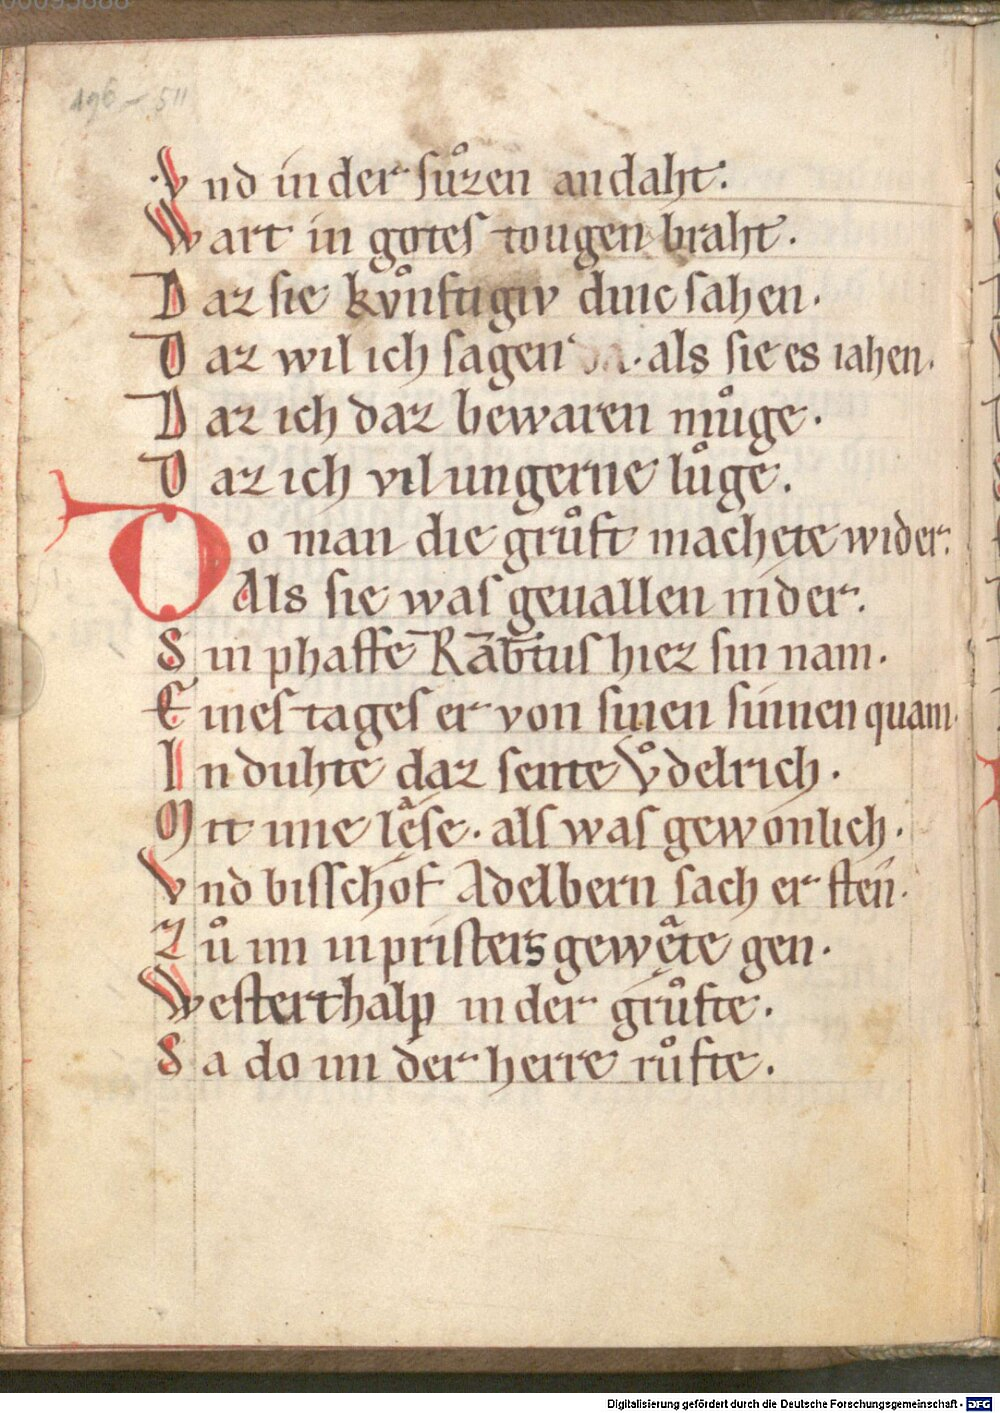 496 – 511
Vnd in der suͦzen andaht.
Wart in gotes tougen braht.
Daz sie kvͦnftigiv dinc sahen.
Daz wil ich sagen da. als sie es iahen.
Daz ich daz bewaren muͦge.
Daz ich vil ungerne luͦge.
Do man die gruͦft machete wider.
Als sie was geuallen nider.
Sin phaffe Rābtus hiez sin nam.
Eines tages er von sinen sinnen quam.
In duhte daz sente Vͦdelrich.
Mit ime lese. als was gewonlich.
Vnd bisschof Adelbern sach er sten.
Zuͦ im in pristers gewete gen.
Westerthalp in der gruͦfte.
Sa do im der herre ruͦfte.
Digitalisierung gefördert durch die Deutsche Forschungsgemeinschaft - DFG